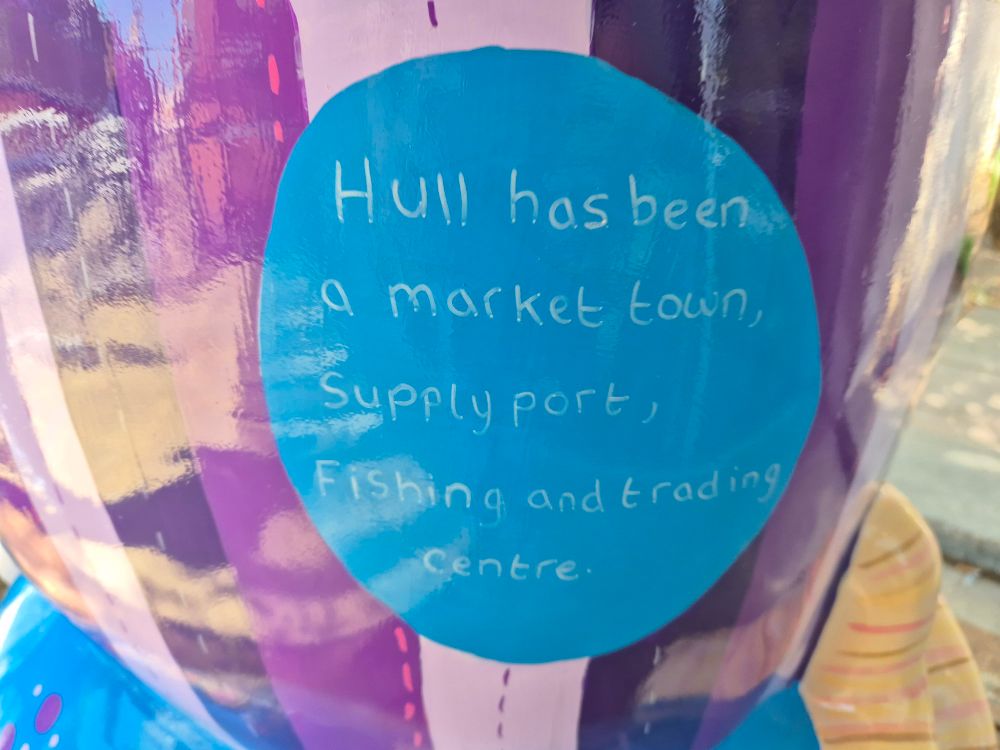 Hull has been
a market town,
Supply port,
Fishing and trading
centre.